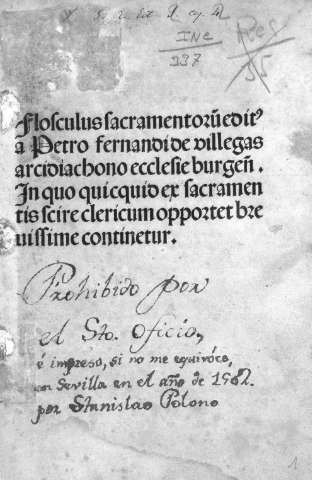 INC
337
Flosculus sacramentorũ edit⁹
a Petro fernandi de villegas
arcidiachono ecclesie burgeñ.
In quo quicquid ex sacramen
tis scire clericum opportet bre
uissime continetur.
Prohibido por
el Sto. Oficio,
é impreso, si no me equivoco,
en Sevilla en el año de 1502.
por Stanislao Polono
1